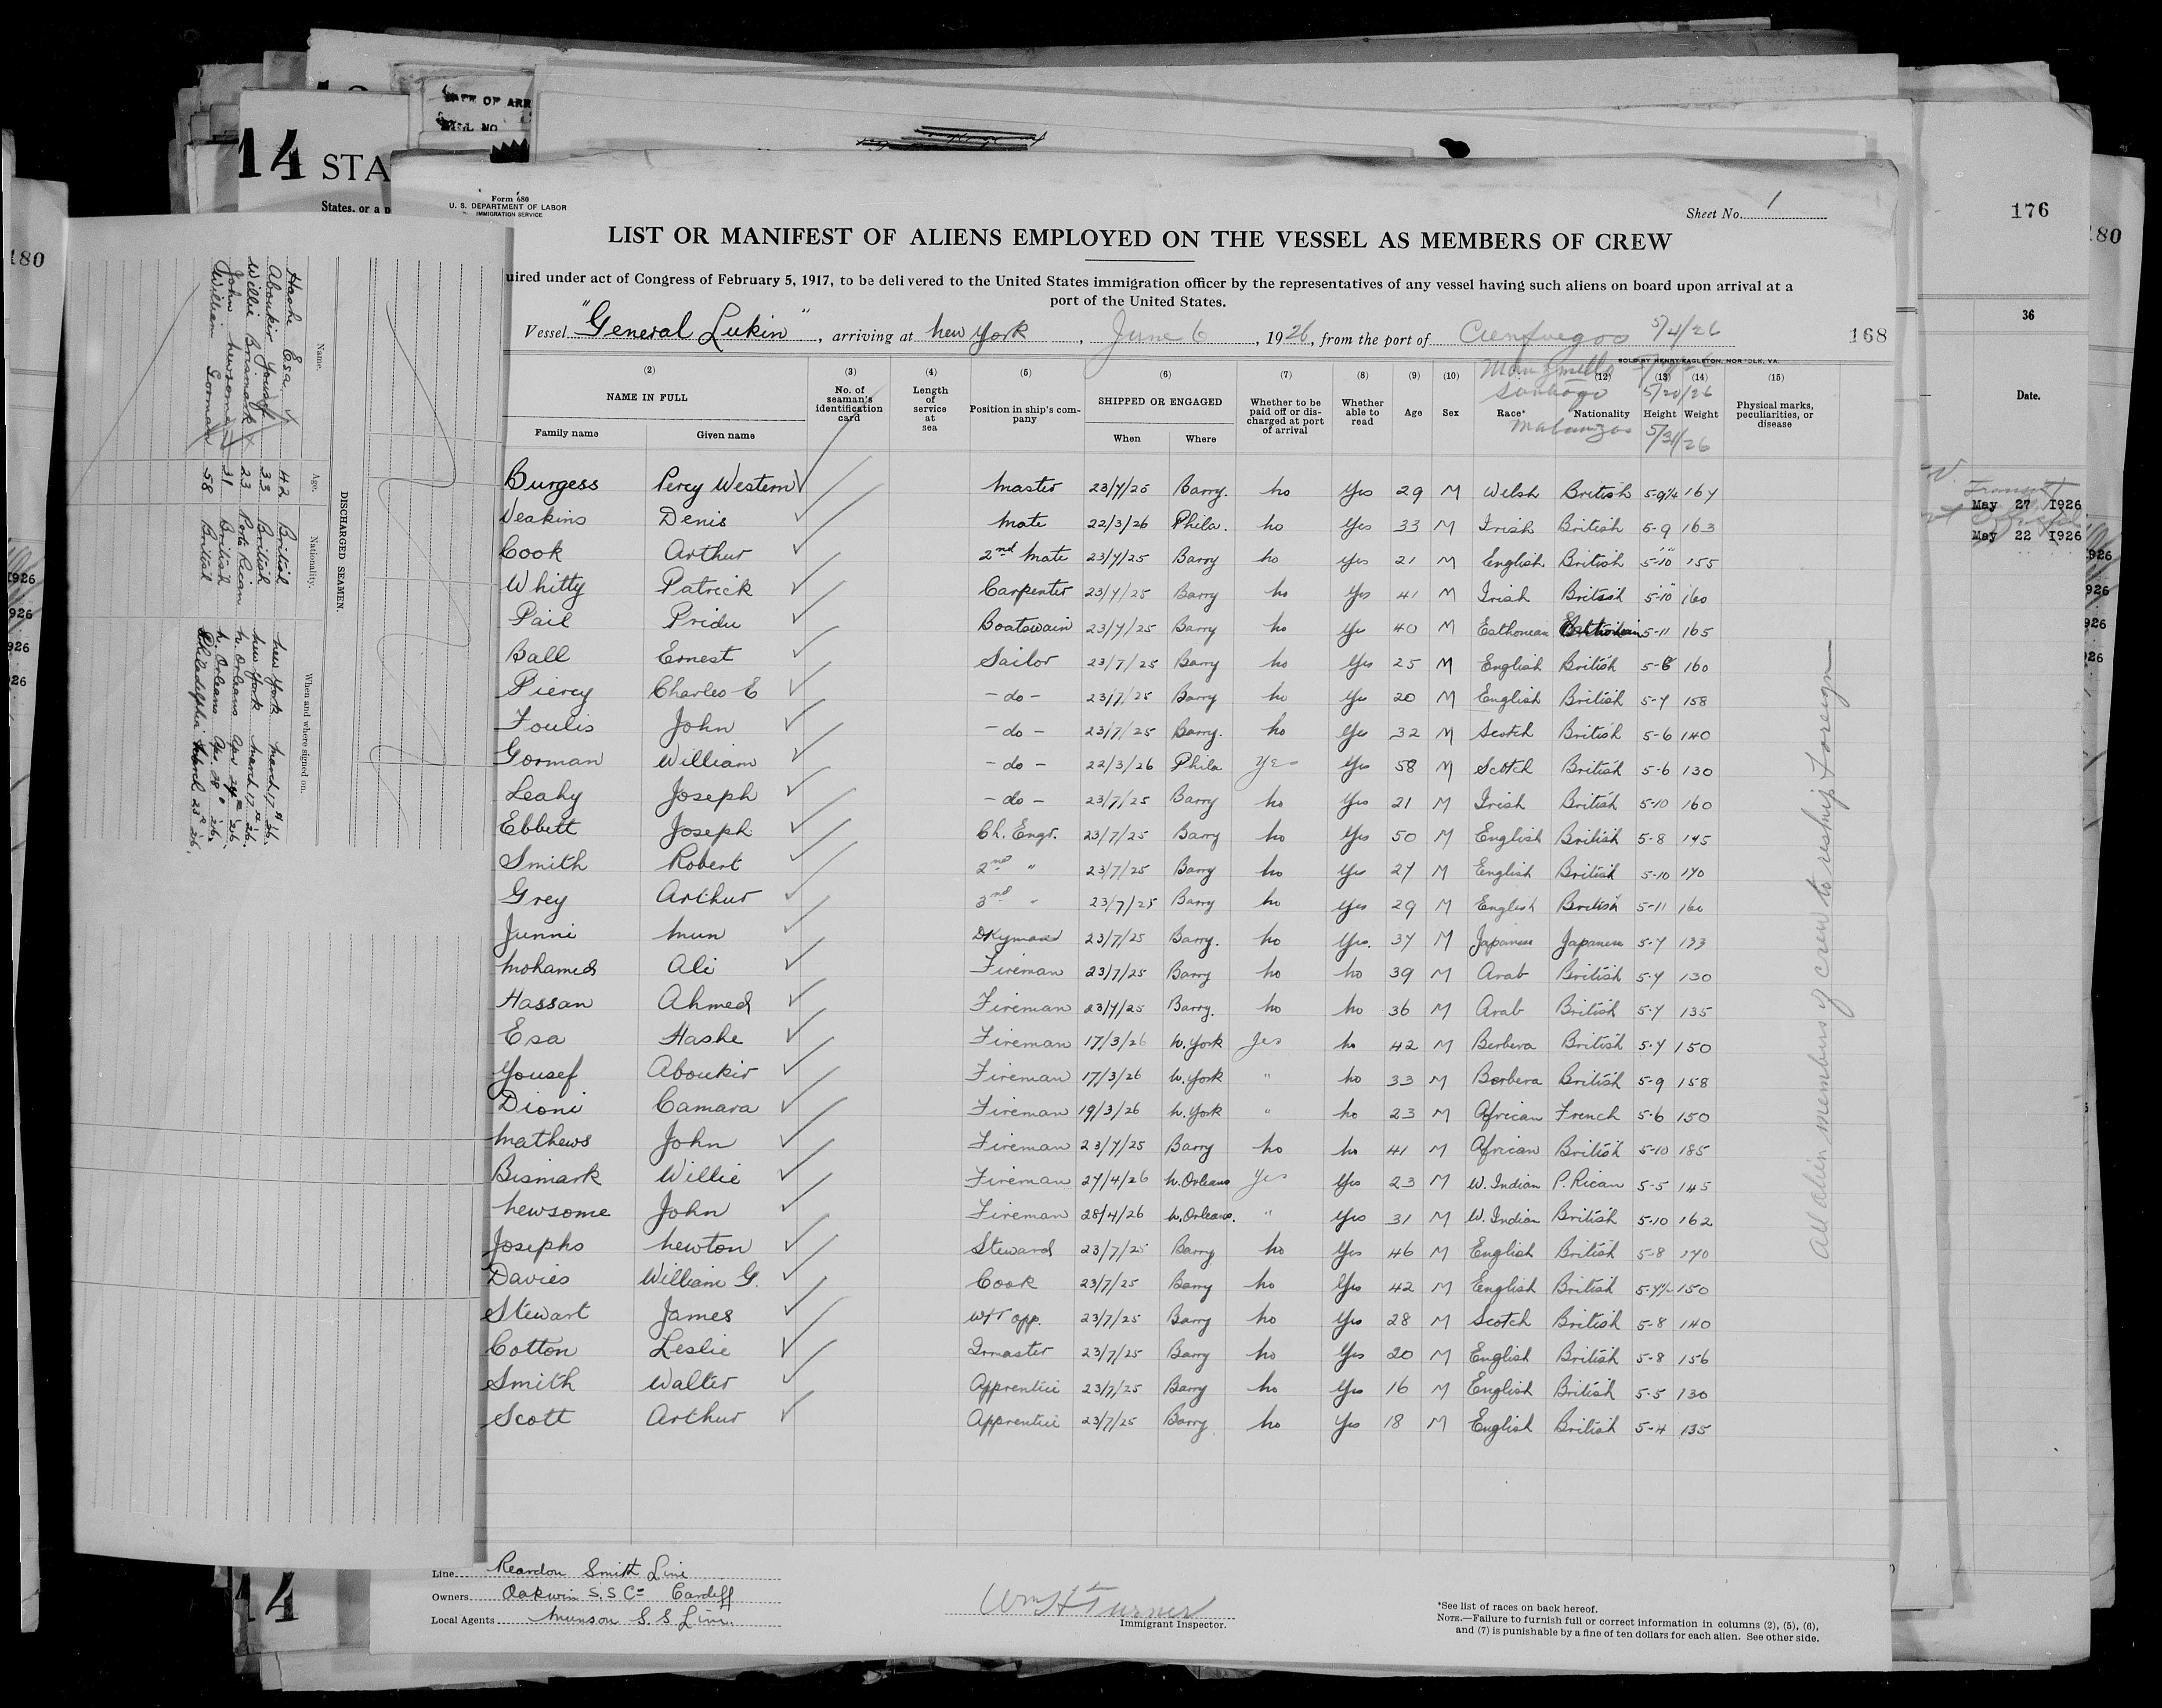 14 STA
States, or a p
DATE OF ARR
180
Form 680
U. S. DEPARTMENT OF LABOR
IMMIGRATION SERVICE
Sheet No. 1
176
180
LIST OR MANIFEST OF ALIENS EMPLOYED ON THE VESSEL AS MEMBERS OF CREW
uired under act of Congress of February 5, 1917, to be delivered to the United States immigration officer by the representatives of any vessel having such aliens on board upon arrival at a
port of the United States.
Vessel "General Lukin", arriving at New York, June 6, 1926, from the port of Cienfuegos 5/4/26
168
SOLD BY HENRY EAGLETON, NORFOLK, VA.
Manzanillo
Santiago 5/20/26
Matanzas 5/31/26
(2) (3) (4) (5) (6) (7) (8) (9) (10) (12) (13) (14) (15)
NAME IN FULL
Family name Given name
No. of seaman's identification card
Length of service at sea
Position in ship's company
SHIPPED OR ENGAGED
When Where
Whether to be paid off or discharged at port of arrival
Whether able to read
Age Sex Race* Nationality Height Weight
Physical marks, peculiarities, or disease
Burgess Percy Western Master 23/7/25 Barry. No Yes 29 M Welsh British 5-9½ 164
Veakins Denis Mate 22/3/26 Phila. No Yes 33 M Irish British 5-9 163
Cook Arthur 2nd Mate 23/7/25 Barry No Yes 21 M English British 5-10 155
Whitty Patrick Carpenter 23/7/25 Barry No Yes 41 M Irish British 5-10 160
Pail Pridu Boatswain 23/7/25 Barry No Yes 40 M Esthonian Esthonian 5-11 165
Ball Ernest Sailor 23/7/25 Barry No Yes 25 M English British 5-6 160
Piercy Charles E - do - 23/7/25 Barry No Yes 20 M English British 5-7 158
Foulis John - do - 23/7/25 Barry. No Yes 32 M Scotch British 5-6 140
Gorman William - do - 22/3/26 Phila Yes Yes 58 M Scotch British 5-6 130
Leahy Joseph - do - 23/7/25 Barry No Yes 21 M Irish British 5-10 160
Ebbett Joseph Ch. Engr. 23/7/25 Barry No Yes 50 M English British 5-8 145
Smith Robert 2nd " 23/7/25 Barry No Yes 27 M English British 5-10 170
Grey Arthur 3rd " 23/7/25 Barry No Yes 29 M English British 5-11 160
Junni Mun Dkyman 23/7/25 Barry. No Yes. 37 M Japanese Japanese 5-7 133
Mohamed Ali Fireman 23/7/25 Barry No No 39 M Arab British 5-7 130
Hassan Ahmed Fireman 23/7/25 Barry. No No 36 M Arab British 5-7 135
Esa Hashe Fireman 17/3/26 N. York Yes No 42 M Berbera British 5-7 150
Yousef Aboukir Fireman 17/3/26 N. York " No 33 M Berbera British 5-9 158
Dioni Camara Fireman 19/3/26 N. York " No 23 M African French 5-6 150
Mathews John Fireman 23/7/25 Barry No No 41 M African British 5-10 185
Bismark Willie Fireman 27/4/26 N. Orleans Yes Yes 23 M W. Indian P. Rican 5-5 145
Newsome John Fireman 28/4/26 N. Orleans. " Yes 31 M W. Indian British 5-10 162
Josephs Newton Steward 23/7/25 Barry No Yes 46 M English British 5-8 170
Davies William G. Cook 23/7/25 Barry No Yes 42 M English British 5-7½ 150
Stewart James W/T opp. 23/7/25 Barry No Yes 28 M Scotch British 5-8 140
Cotton Leslie 23/7/25 Barry No Yes 20 M English British 5-8 156
Smith Walter Apprentice 23/7/25 Barry No Yes 16 M English British 5-5 130
Scott Arthur Apprentice 23/7/25 Barry No Yes 18 M English British 5-4 135
All alien members of crew to reship foreign
Line Reardon Smith Line
Owners Oakwin S.S Co Cardiff
Local Agents Munson S.S Line.
Wm H Turner
Immigrant Inspector.
*See list of races on back hereof.
NOTE.—Failure to furnish full or correct information in columns (2), (5), (6),
and (7) is punishable by a fine of ten dollars for each alien. See other side.
DISCHARGED SEAMEN.
Name. Age. Nationality. When and where signed on.
Hashe Esa 42 British New York March 17 '26.
Aboukir Yousef 33 British New York March 17 '26.
Willie Brismark 23 Porto Rican N. Orleans Apr 27 '26.
John Newsome 31 British N. Orleans Apr. 28 '26.
William Gorman 58 British Philadelphia March 23 '26.
36
Date.
Transit
May 27 1926
May 22 1926
14